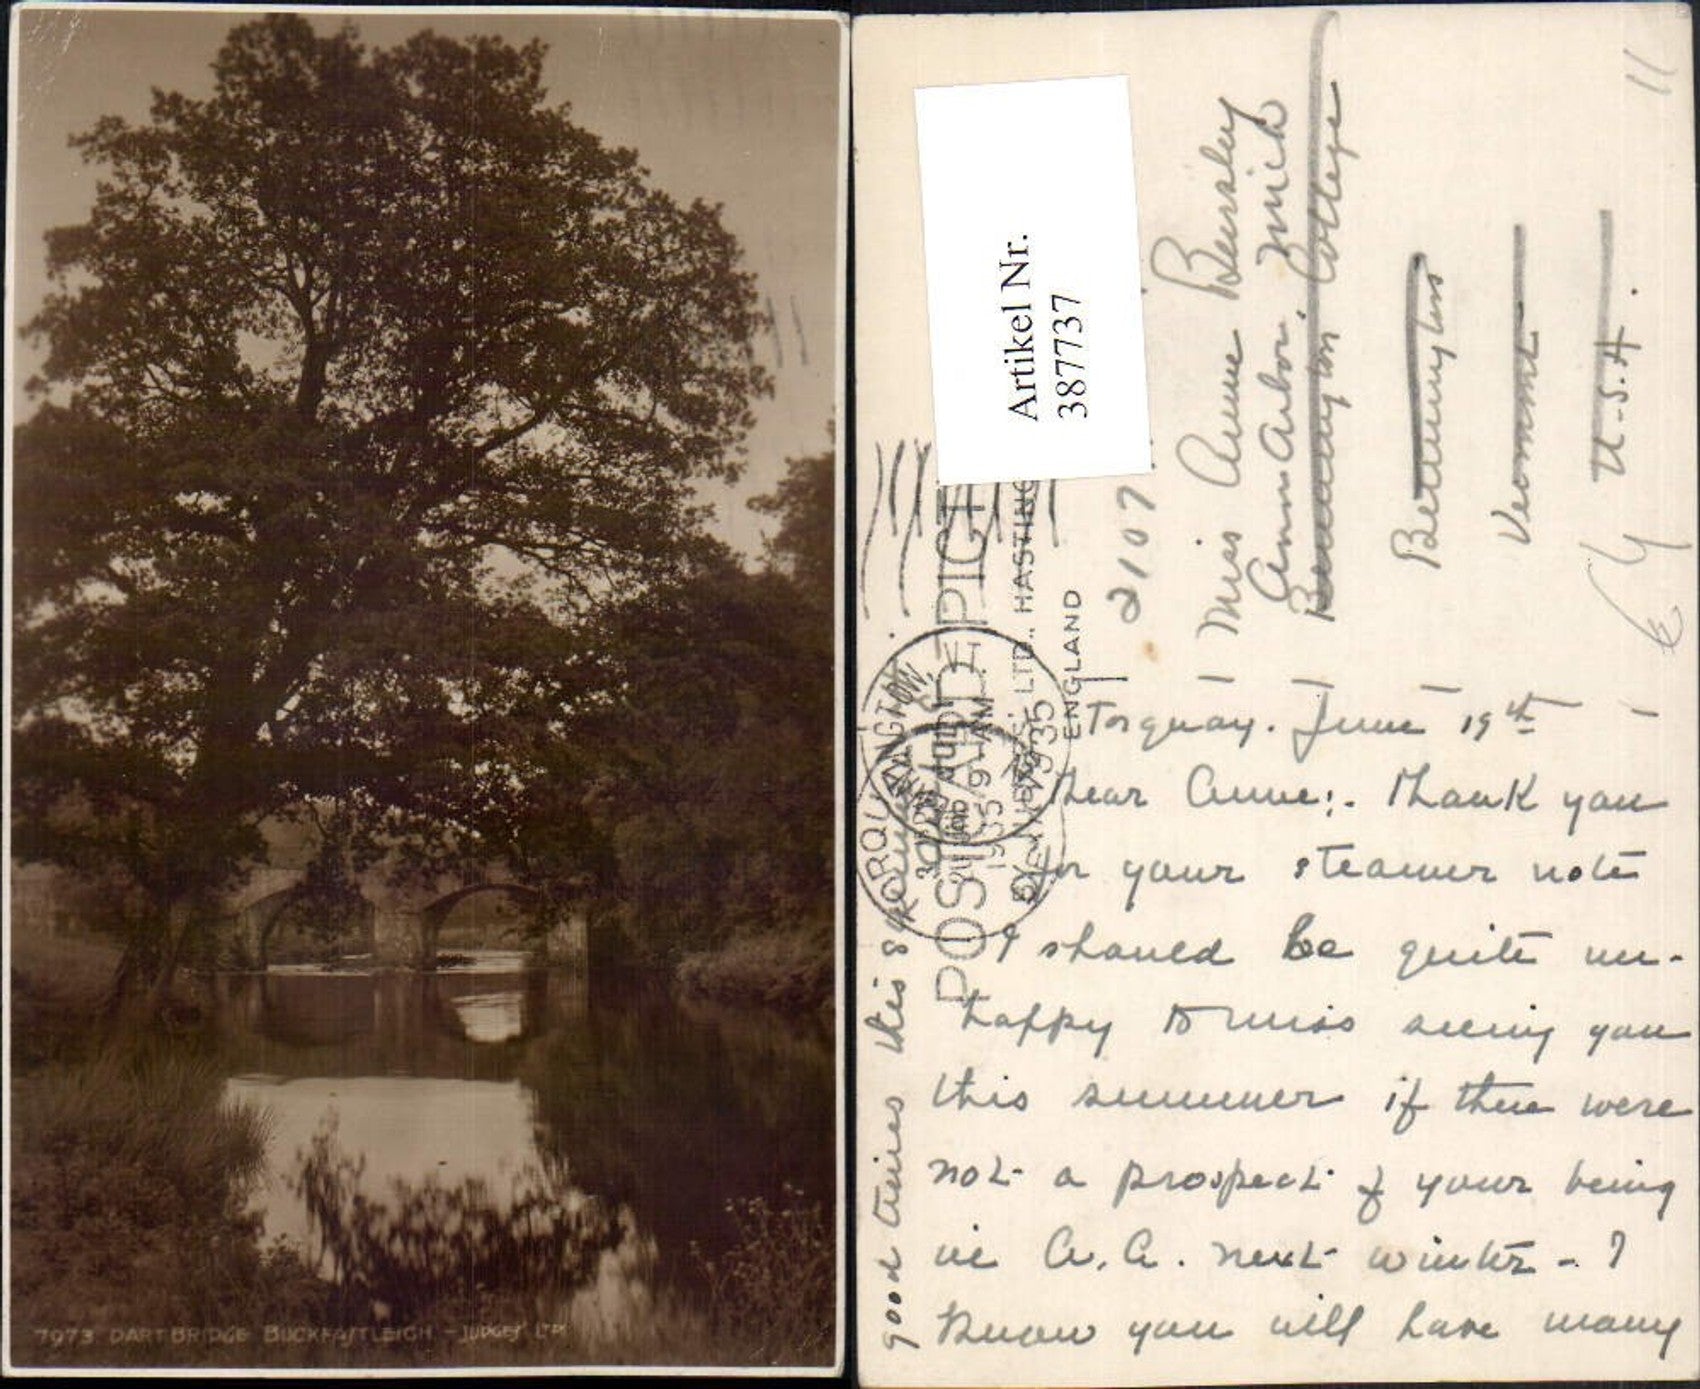 7973 DARTBRIDGE BUCKFASTLEIGH - JUDGES LTD
Artikel Nr.
387737
POSTCARD
BY JUDGES' LTD., HASTINGS
ENGLAND
1935
9 AM
Miss Anne
Ann Arbor, Mich
Bennington College
Bennington
Vermont
U.S.A.
Torquay. June 19th
Dear Anne:. Thank you
for your steamer note
I should be quite un-
happy to miss seeing you
this summer if there were
not a prospect of your being
in A.A. next winter - I
know you will have many
good times this